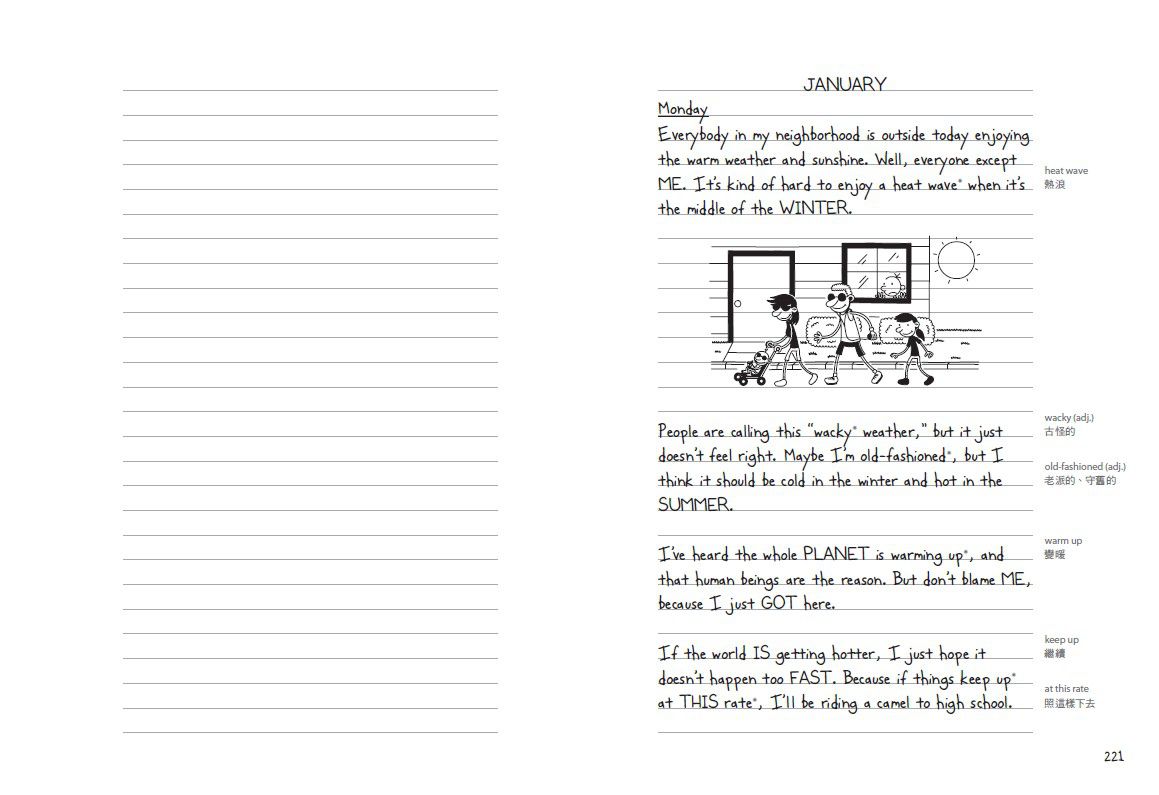 JANUARY
Monday
Everybody in my neighborhood is outside today enjoying
the warm weather and sunshine. Well, everyone except
ME. It's kind of hard to enjoy a heat wave* when it's
the middle of the WINTER.
heat wave
熱浪
People are calling this "wacky* weather," but it just
doesn't feel right. Maybe I'm old-fashioned*, but I
think it should be cold in the winter and hot in the
SUMMER.
wacky (adj.)
古怪的
old-fashioned (adj.)
老派的、守舊的
I've heard the whole PLANET is warming up*, and
that human beings are the reason. But don't blame ME,
because I just GOT here.
warm up
變暖
If the world IS getting hotter, I just hope it
doesn't happen too FAST. Because if things keep up*
at THIS rate*, I'll be riding a camel to high school.
keep up
繼續
at this rate
照這樣下去
221